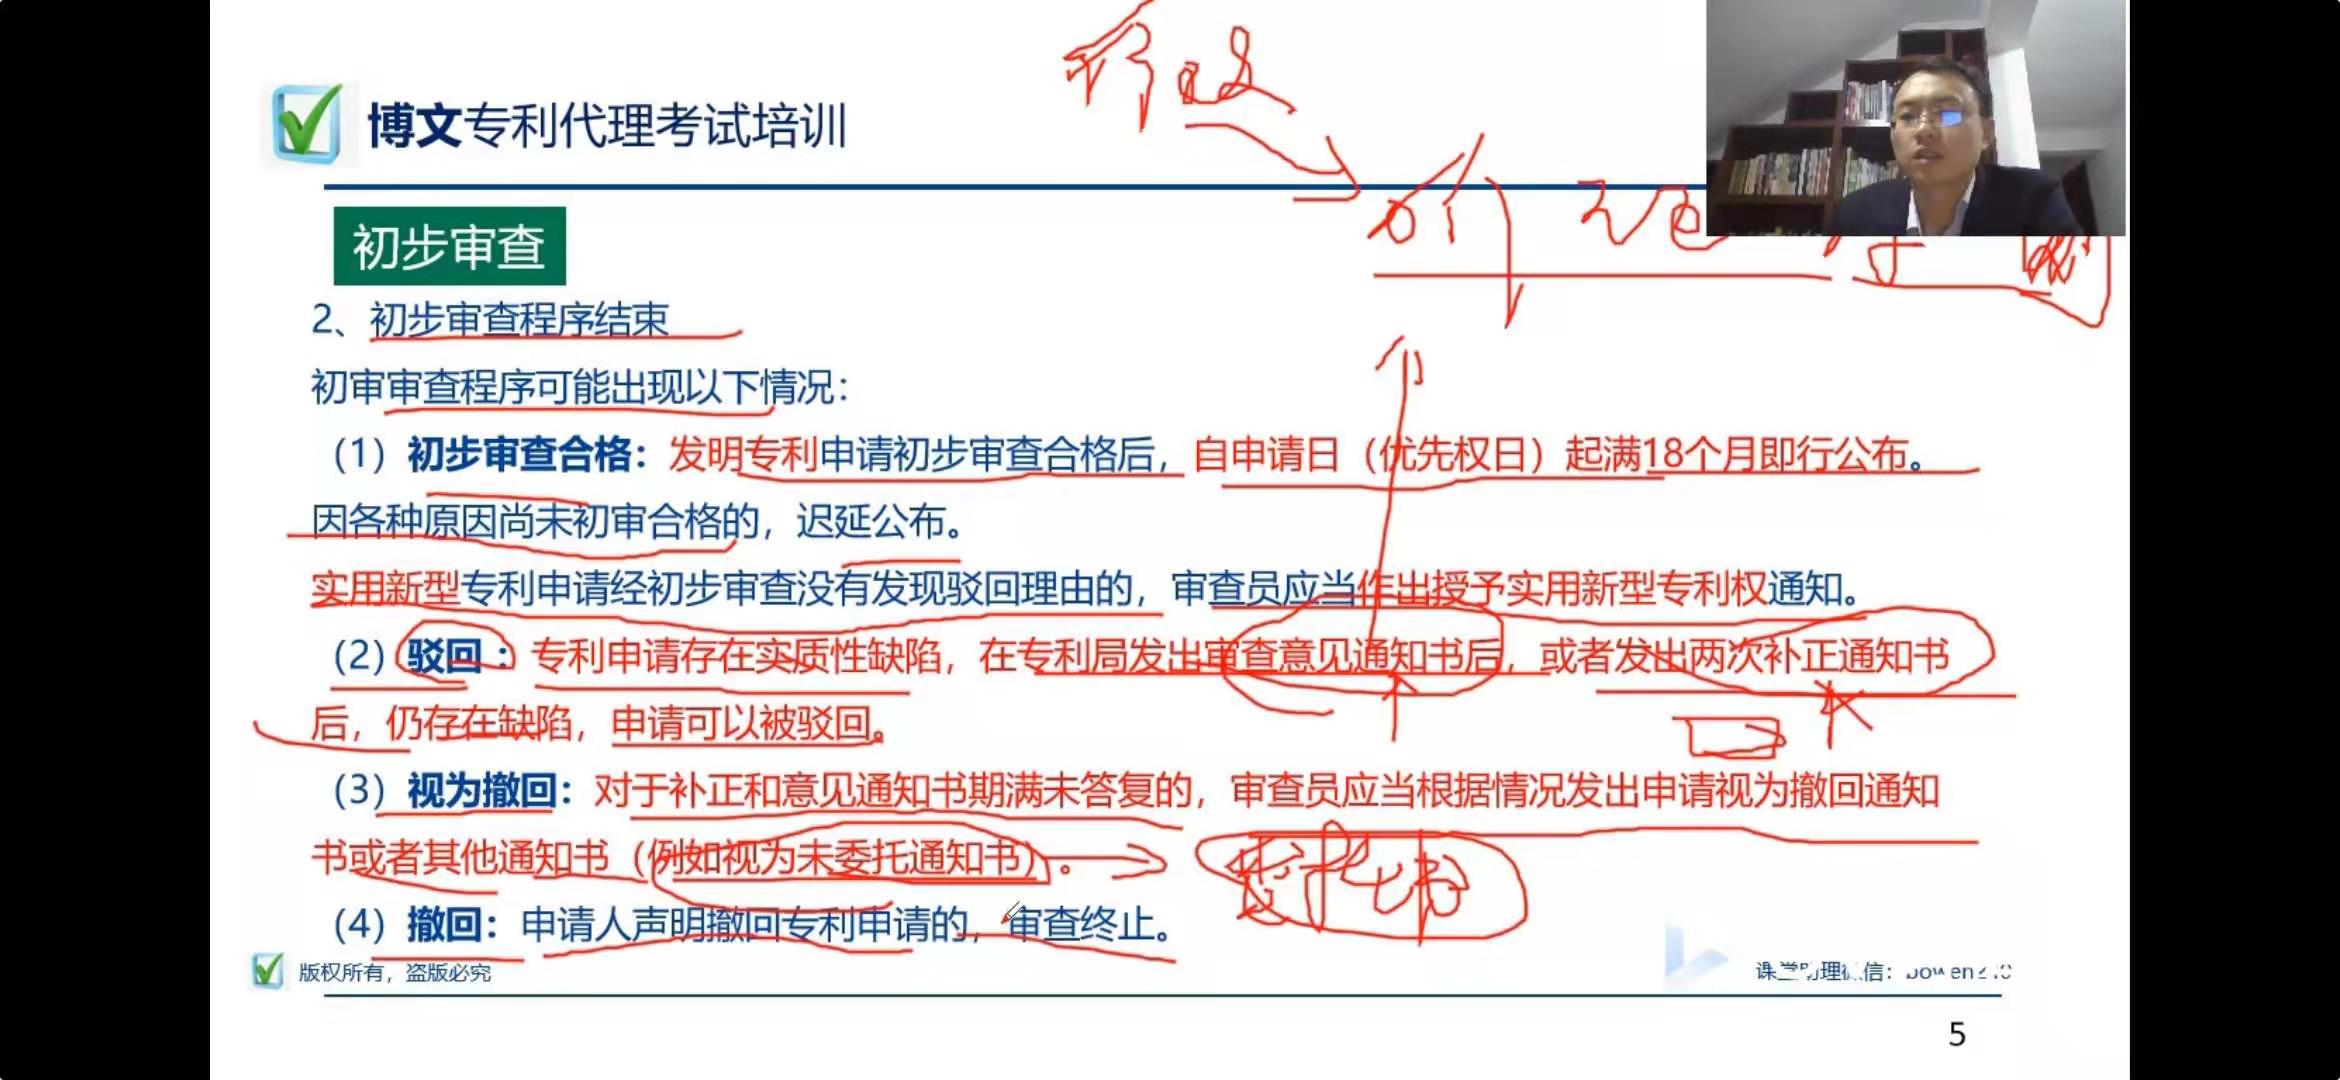 博文专利代理考试培训
初步审查
2、初步审查程序结束
初审审查程序可能出现以下情况：
（1）初步审查合格：发明专利申请初步审查合格后，自申请日（优先权日）起满18个月即行公布。
因各种原因尚未初审合格的，迟延公布。
实用新型专利申请经初步审查没有发现驳回理由的，审查员应当作出授予实用新型专利权通知。
（2）驳回：专利申请存在实质性缺陷，在专利局发出审查意见通知书后，或者发出两次补正通知书
后，仍存在缺陷，申请可以被驳回。
（3）视为撤回：对于补正和意见通知书期满未答复的，审查员应当根据情况发出申请视为撤回通知
书或者其他通知书（例如视为未委托通知书）。
（4）撤回：申请人声明撤回专利申请的，审查终止。
版权所有，盗版必究
5